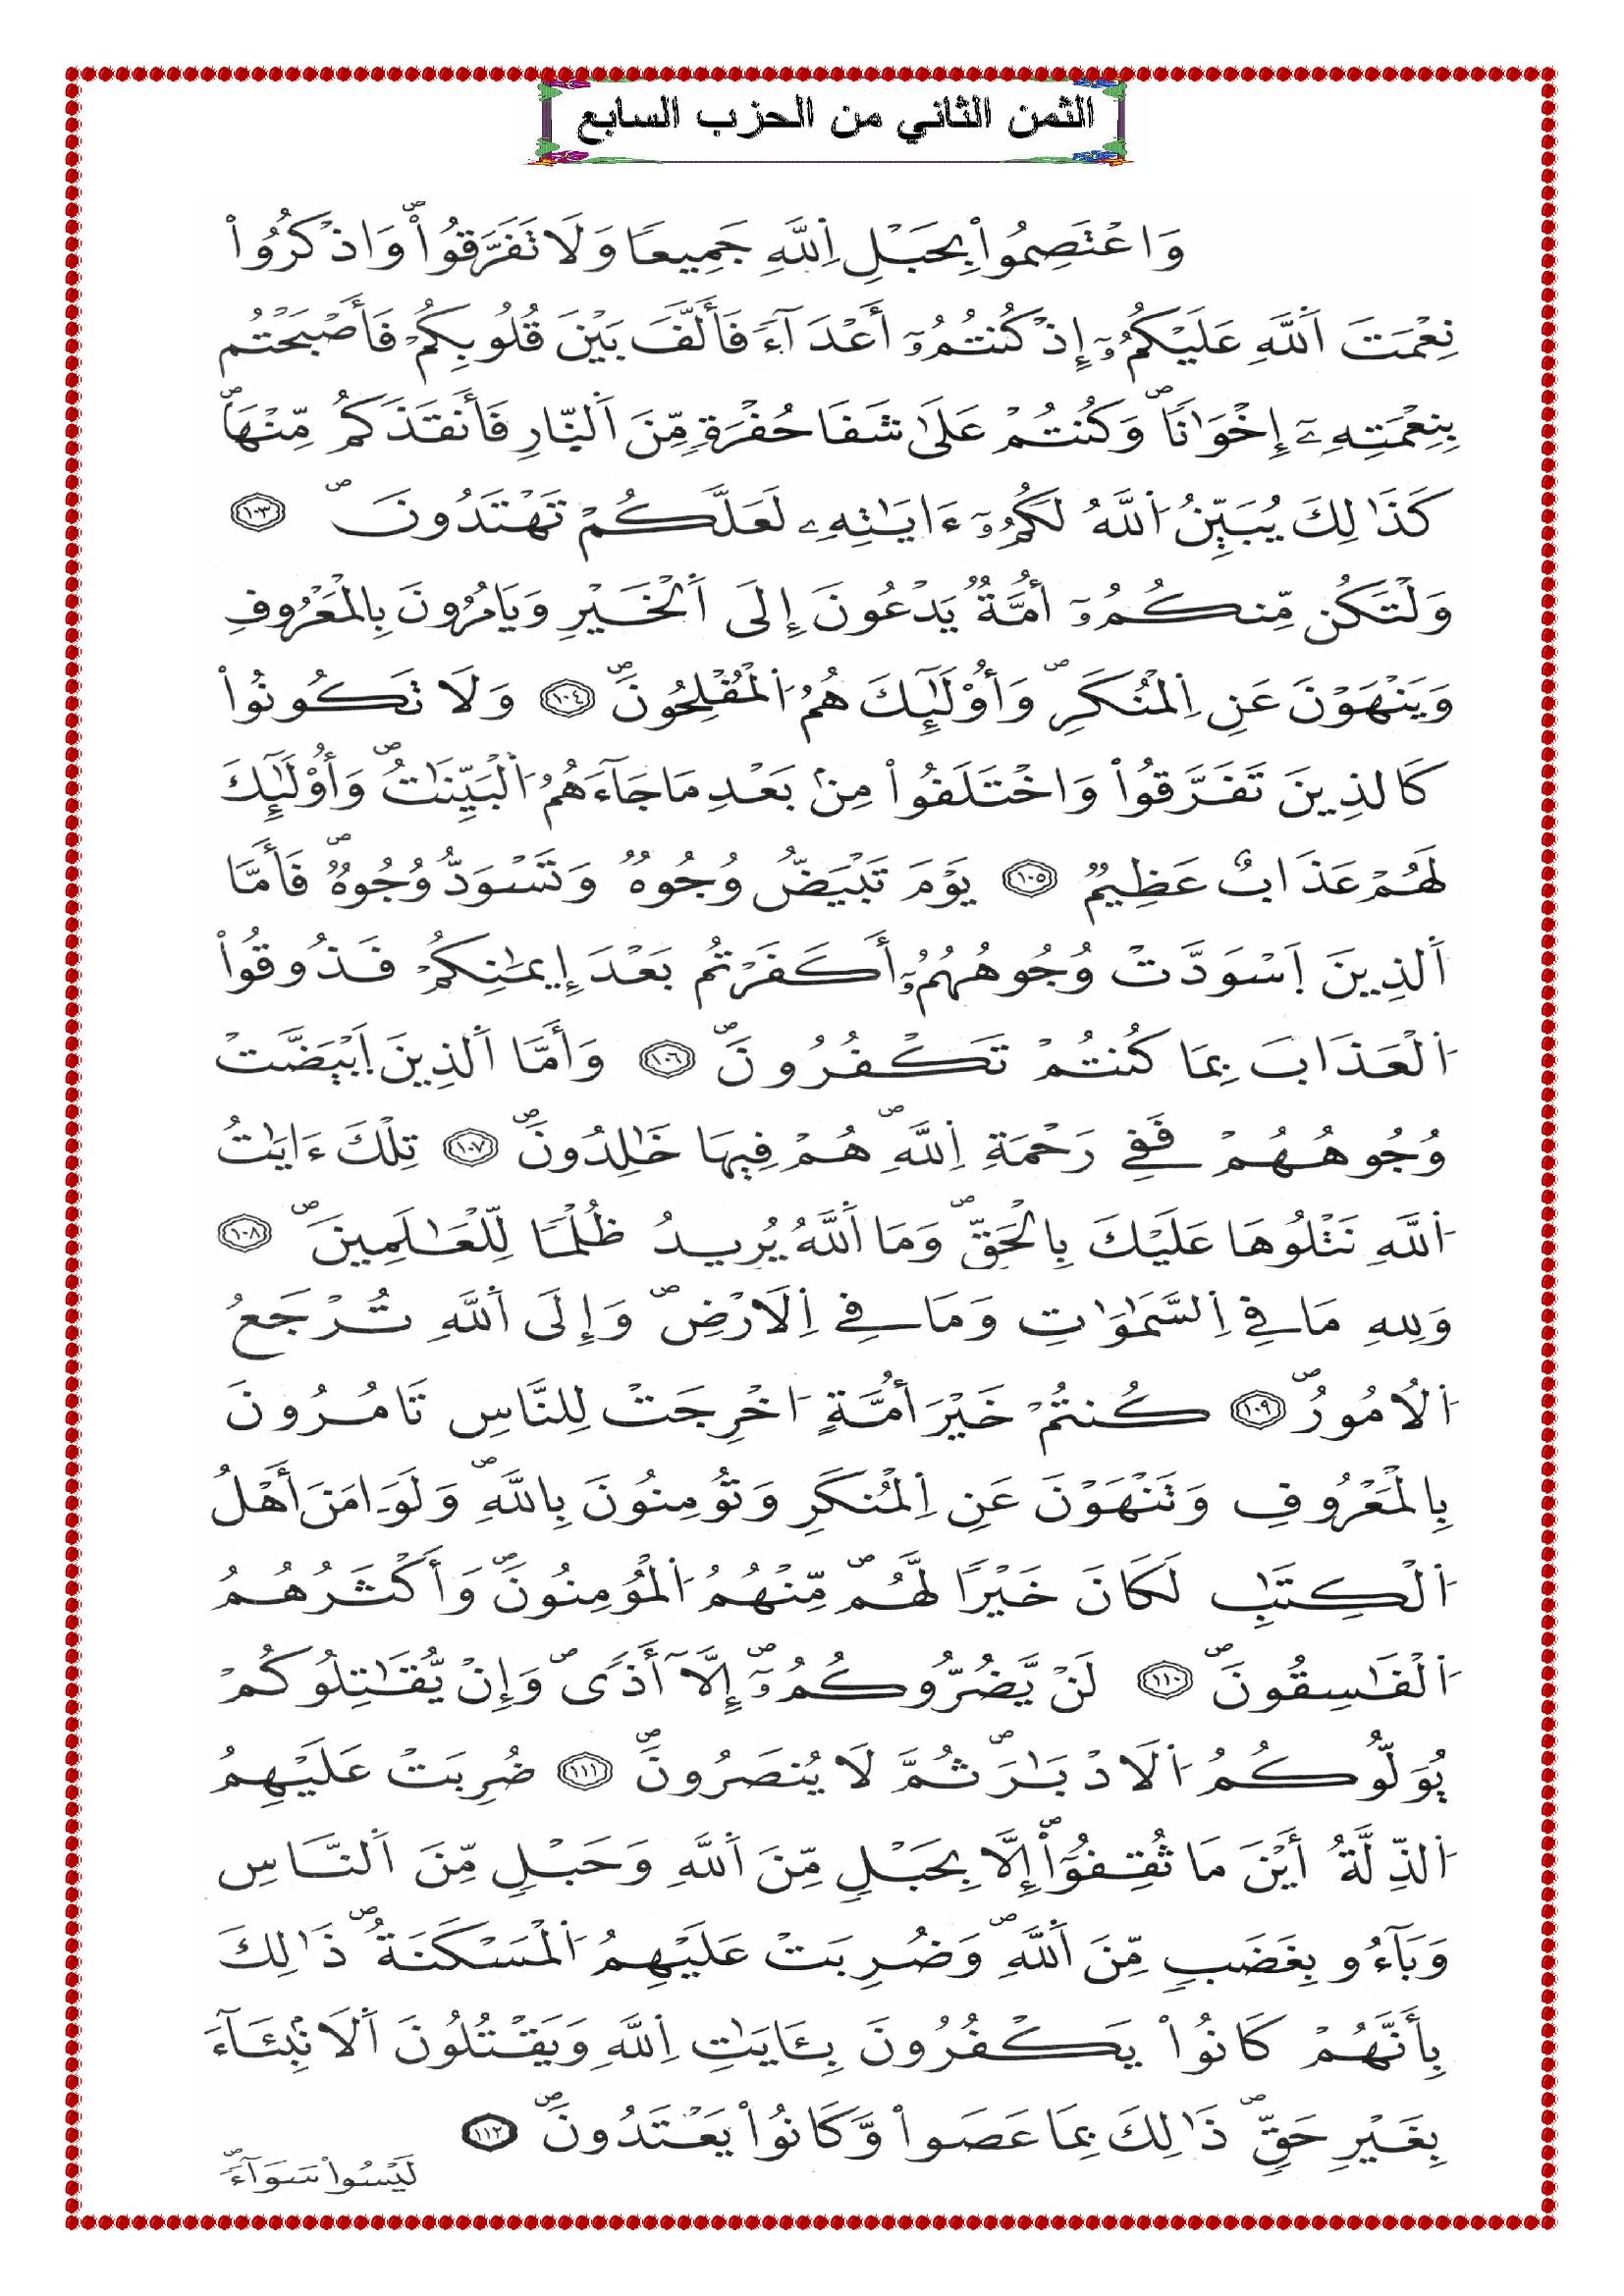 الثمن الثاني من الحزب السابع
وَاعْتَصِمُواْ بِحَبْلِ اِ۬للَّهِ جَمِيعاٗ وَلَا تَفَرَّقُواْۖ وَاذْكُرُواْ
نِعْمَتَ اَ۬للَّهِ عَلَيْكُمُۥٓ إِذْ كُنتُمُۥٓ أَعْدَآءٗ فَأَلَّفَ بَيْنَ قُلُوبِكُمْ فَأَصْبَحْتُم
بِنِعْمَتِهِۦٓ إِخْوَٰناٗۖ وَكُنتُمْ عَلَىٰ شَفَا حُفْرَةٖ مِّنَ اَ۬لنّ۪ارِ فَأَنقَذَكُم مِّنْهَاۖ
كَذَٰلِكَ يُبَيِّنُ اُ۬للَّهُ لَكُمُۥٓ ءَايَٰتِهِۦ لَعَلَّكُمْ تَهْتَدُونَۖ ١٠٣
وَلْتَكُن مِّنكُمُۥٓ أُمَّةٞ يَدْعُونَ إِلَى اَ۬لْخَيْرِ وَيَامُرُونَ بِالْمَعْرُوفِ
وَيَنْهَوْنَ عَنِ اِ۬لْمُنكَرِۖ وَأُوْلَٰٓئِكَ هُمُ اُ۬لْمُفْلِحُونَۖ ١٠٤ وَلَا تَكُونُواْ
كَالذِينَ تَفَرَّقُواْ وَاخْتَلَفُواْ مِنۢ بَعْدِ مَا جَآءَهُمُ اُ۬لْبَيِّنَٰتُۖ وَأُوْلَٰٓئِكَ
لَهُمْ عَذَابٌ عَظِيمٞ ١٠٥ يَوْمَ تَبْيَضُّ وُجُوهٞ وَتَسْوَدُّ وُجُوهٞۖ فَأَمَّا
اَ۬لذِينَ اَ۪سْوَدَّتْ وُجُوهُهُمُۥٓ أَكَفَرْتُم بَعْدَ إِيمَٰنِكُمْ فَذُوقُواْ
اُ۬لْعَذَابَ بِمَا كُنتُمْ تَكْفُرُونَۖ ١٠٦ وَأَمَّا اَ۬لذِينَ اَ۪بْيَضَّتْ
وُجُوهُهُمْ فَفِے رَحْمَةِ اِ۬للَّهِۖ هُمْ فِيهَا خَٰلِدُونَۖ ١٠٧ تِلْكَ ءَايَٰتُ
اُ۬للَّهِ نَتْلُوهَا عَلَيْكَ بِالْحَقِّۖ وَمَا اَ۬للَّهُ يُرِيدُ ظُلْماٗ لِّلْعَٰلَمِينَۖ ١٠٨
وَلِلهِ مَا فِے اِ۬لسَّمَٰوَٰتِ وَمَا فِے اِ۬لَارْضِۖ وَإِلَى اَ۬للَّهِ تُرْجَعُ
اُ۬لُامُورُۖ ١٠٩ كُنتُمْ خَيْرَ أُمَّةٍ ا۟خْرِجَتْ لِلنَّاسِ تَامُرُونَ
بِالْمَعْرُوفِ وَتَنْهَوْنَ عَنِ اِ۬لْمُنكَرِ وَتُومِنُونَ بِاللَّهِۖ وَلَوَ اٰمَنَ أَهْلُ
اُ۬لْكِتَٰبِ لَكَانَ خَيْراٗ لَّهُمۖ مِّنْهُمُ اُ۬لْمُومِنُونَۖ وَأَكْثَرُهُمُ
اُ۬لْفَٰسِقُونَۖ ١١٠ لَنْ يَّضُرُّوكُمُۥٓۖ إِلَّآ أَذىٗۖ وَإِنْ يُّقَٰتِلُوكُمْ
يُوَلُّوكُمُ اُ۬لَادْبَٰرَۖ ثُمَّ لَا يُنصَرُونَۖ ١١١ ضُرِبَتْ عَلَيْهِمُ
اُ۬لذِّلَّةُ أَيْنَ مَا ثُقِفُوٓاْۖ إِلَّا بِحَبْلٖ مِّنَ اَ۬للَّهِ وَحَبْلٖ مِّنَ اَ۬لنَّاسِ
وَبَآءُو بِغَضَبٖ مِّنَ اَ۬للَّهِۖ وَضُرِبَتْ عَلَيْهِمُ اُ۬لْمَسْكَنَةُۖ ذَٰلِكَ
بِأَنَّهُمْ كَانُواْ يَكْفُرُونَ بِـَٔايَٰتِ اِ۬للَّهِ وَيَقْتُلُونَ اَ۬لَانۢبِئَآءَ
بِغَيْرِ حَقّٖۖ ذَٰلِكَ بِمَا عَصَواْ وَّكَانُواْ يَعْتَدُونَۖ ١١٢
لَيْسُواْ سَوَآءٗۖ